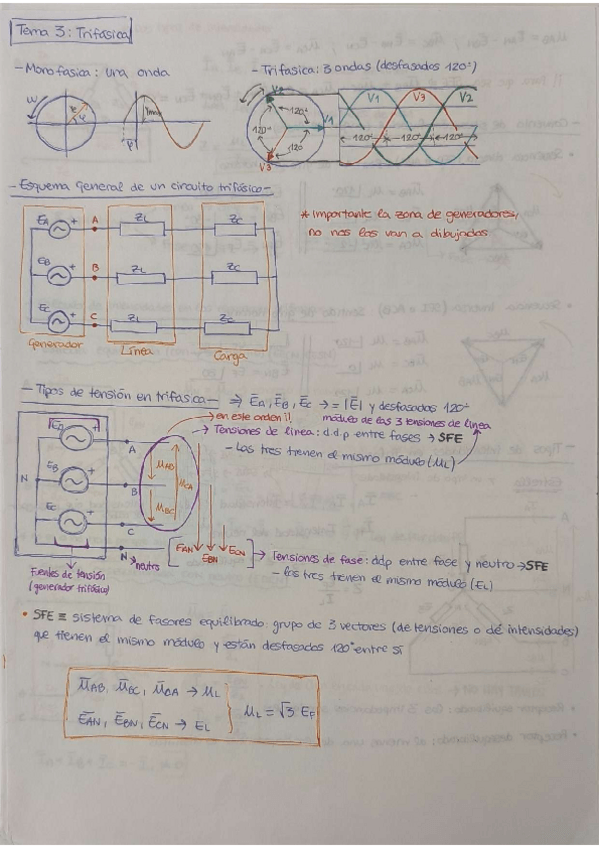 Tema 3: Trifásica
- Monofásica: una onda
- Trifásica: 3 ondas (desfasados 120º)
V2
V1
V3
120º
120º
120
V1 V3 V2
120º 120º 120º
- Esquema general de un circuito trifásico -
EA + A ZL ZC
EB + B ZL ZC
EC + C ZL ZC
Generador Línea Carga
* Importante la zona de generadores,
no nos las van a dibujadas
- Tipos de tensión en trifásica - ⇒ ĒA, ĒB, ĒC → = |Ē| y desfasados 120º
en este orden!!
módulo de las 3 tensiones de línea
→ Tensiones de línea: d.d.p entre fases → SFE
- Las tres tienen el mismo módulo (UL)
EA A
EB B
EC C
N
N
neutro
UAB
UBC
UCA
EAN
EBN
ECN
→ Tensiones de fase: ddp entre fase y neutro → SFE
- las tres tienen el mismo módulo (EL)
Fuentes de tensión
(generador trifásico)
• SFE ≡ sistema de fasores equilibrado: grupo de 3 vectores (de tensiones o de intensidades)
que tienen el mismo módulo y están desfasados 120º entre sí
ŪAB, ŪBC, ŪCA → UL
ĒAN, ĒBN, ĒCN → EL
UL = √3 EF